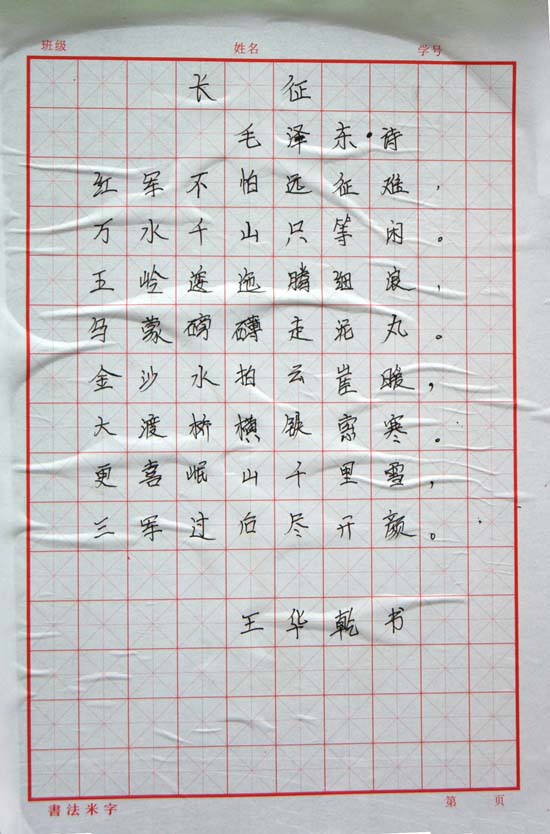 班级 姓名 学号
长征
毛泽东·诗
红军不怕远征难，
万水千山只等闲。
五岭逶迤腾细浪，
乌蒙磅礴走泥丸。
金沙水拍云崖暖，
大渡桥横铁索寒。
更喜岷山千里雪，
三军过后尽开颜。
王华乾书
書法米字 第 页